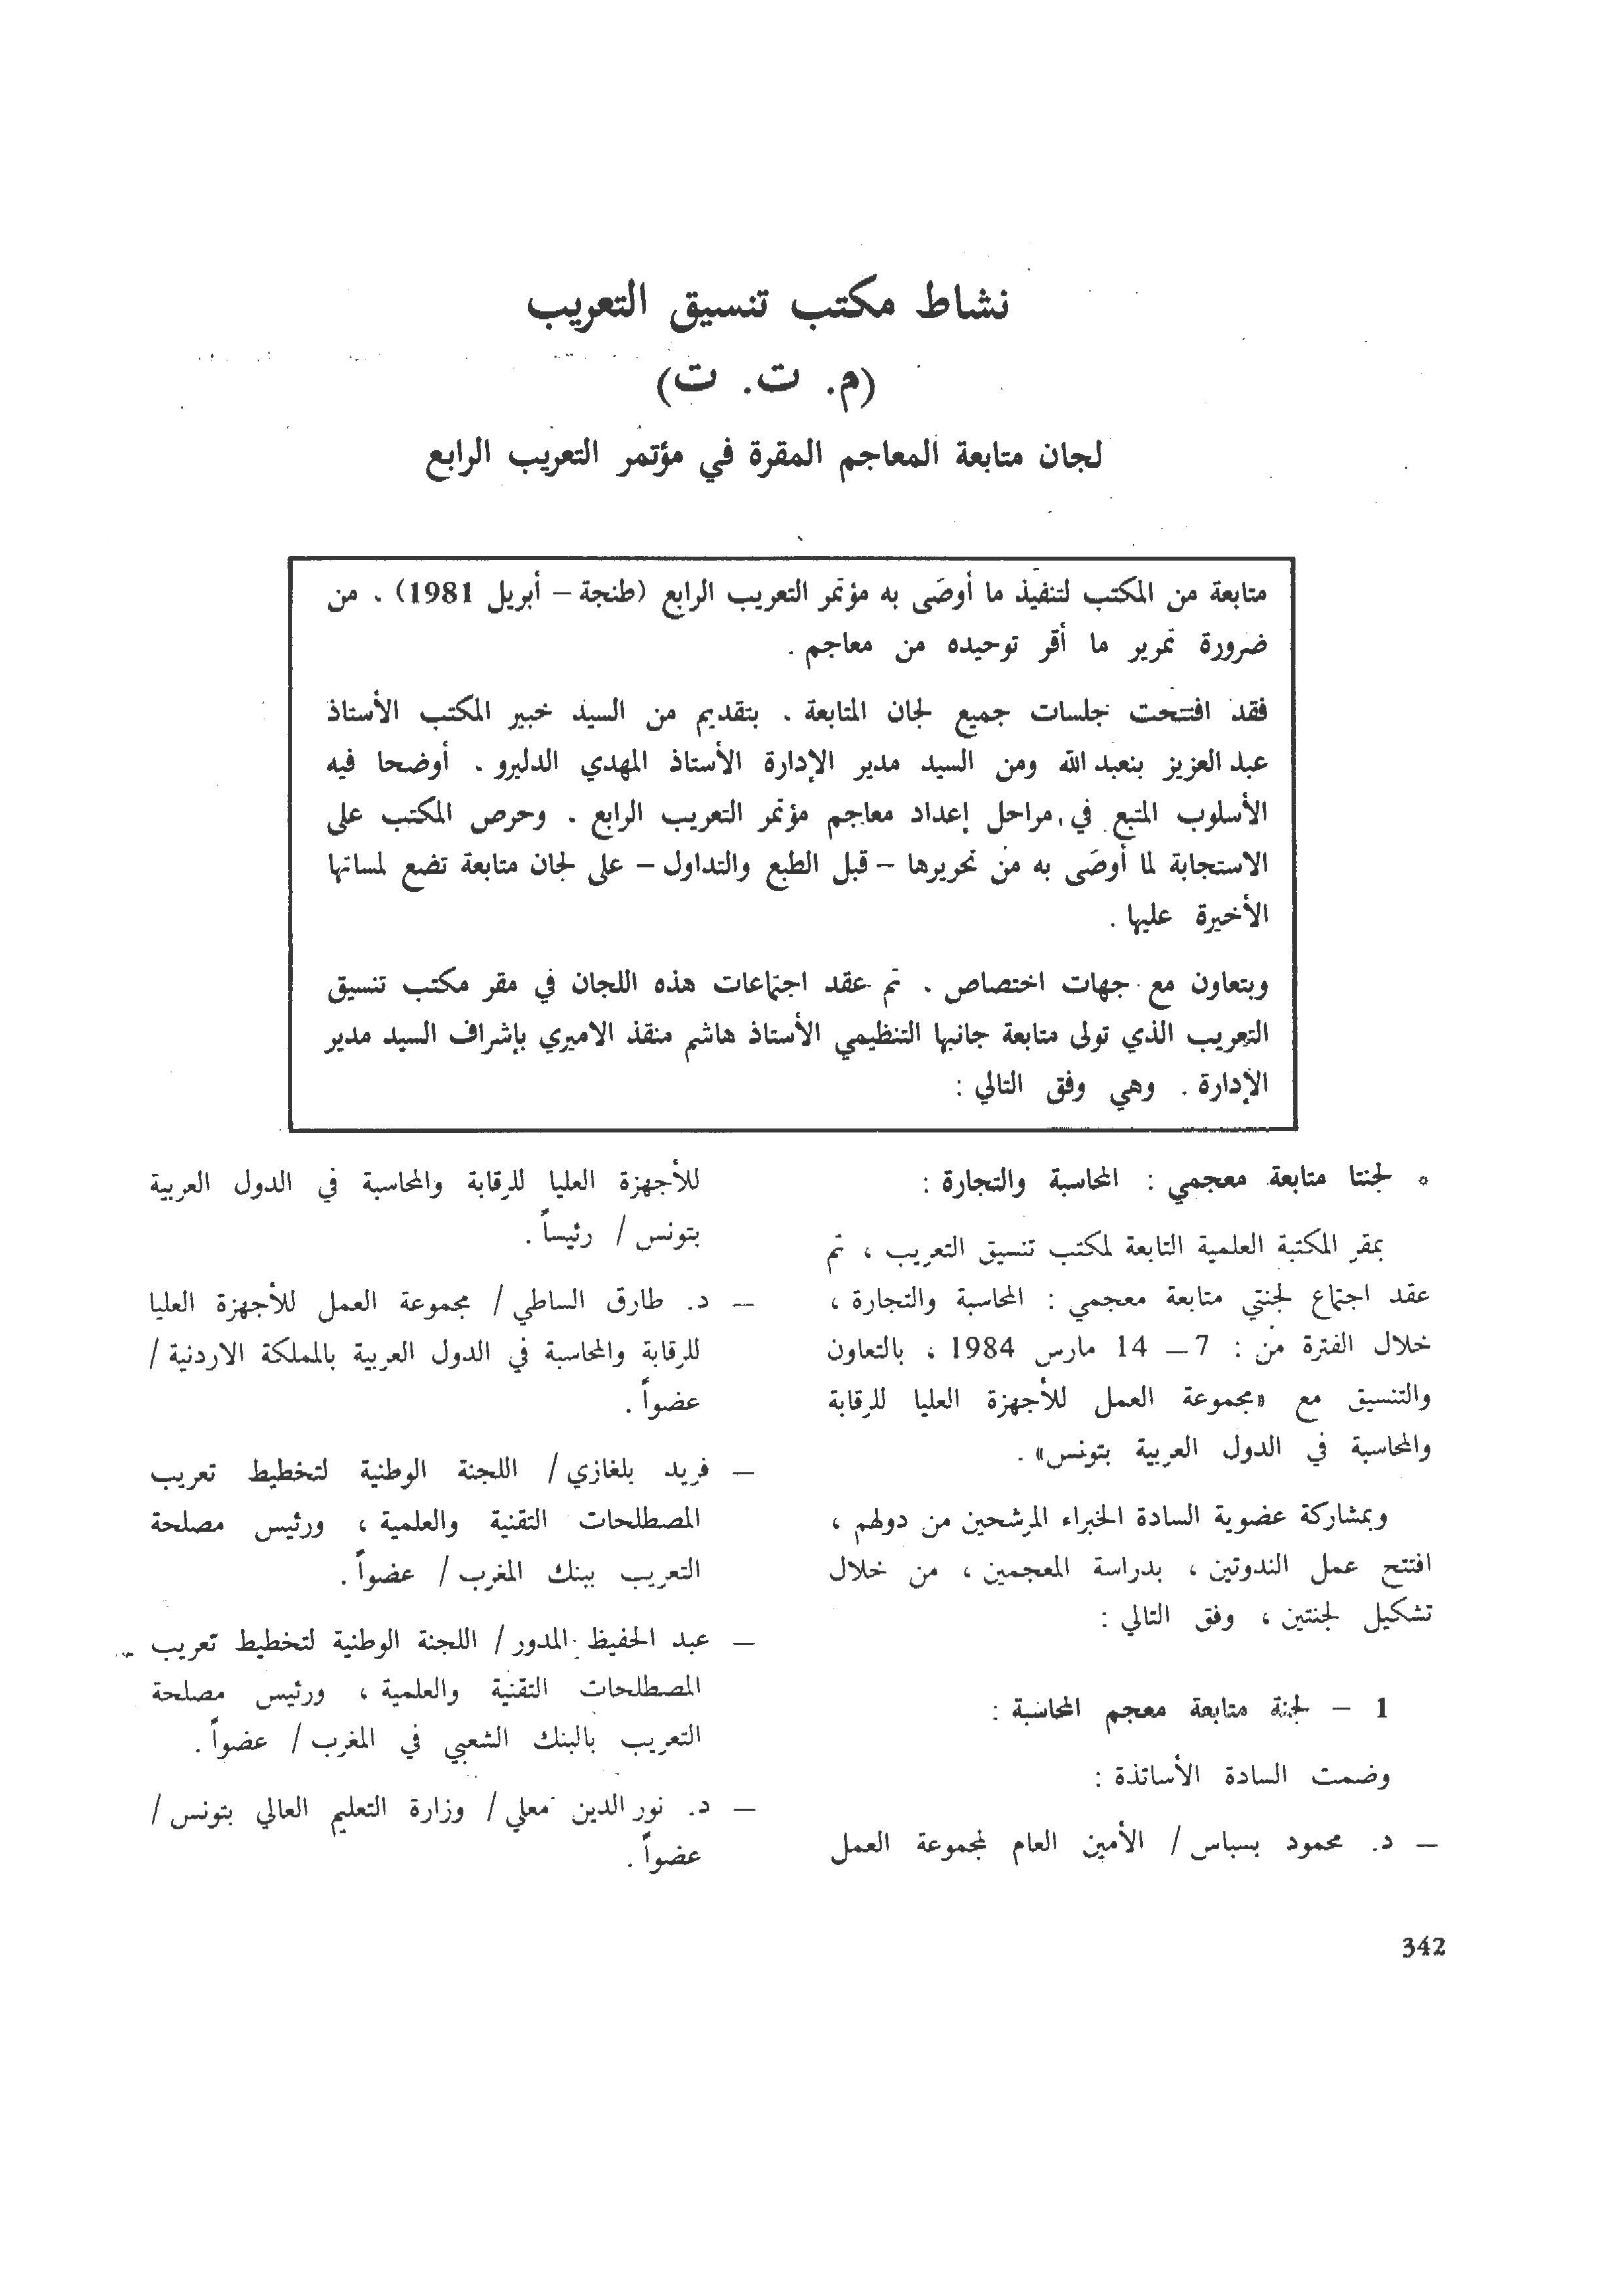 نشاط مكتب تنسيق التعريب
(م. ت. ت)
لجان متابعة المعاجم المقرة في مؤتمر التعريب الرابع
متابعة من المكتب لتنفيذ ما أوصى به مؤتمر التعريب الرابع (طنجة – أبريل 1981) ، من
ضرورة تمرير ما أقر توحيده من معاجم .
فقد افتتحت جلسات جميع لجان المتابعة ، بتقديم من السيد خبير المكتب الأستاذ
عبد العزيز بنعبد الله ومن السيد مدير الإدارة الأستاذ المهدي الدليرو ، أوضحا فيه
الأسلوب المتبع في مراحل إعداد معاجم مؤتمر التعريب الرابع ، وحرص المكتب على
الاستجابة لما أوصى به من تحريرها – قبل الطبع والتداول – على لجان متابعة تضع لمساتها
الأخيرة عليها .
وبتعاون مع جهات اختصاص ، تم عقد اجتماعات هذه اللجان في مقر مكتب تنسيق
التعريب الذي تولى متابعة جانبها التنظيمي الأستاذ هاشم منقذ الاميري بإشراف السيد مدير
الإدارة . وهي وفق التالي :
* لجنتا متابعة معجمي : المحاسبة والتجارة :
بمقر المكتبة العلمية التابعة لمكتب تنسيق التعريب ، تم
عقد اجتماع لجنتي متابعة معجمي : المحاسبة والتجارة ،
خلال الفترة من : 7 – 14 مارس 1984 ، بالتعاون
والتنسيق مع «مجموعة العمل للأجهزة العليا للرقابة
والمحاسبة في الدول العربية بتونس» .
وبمشاركة عضوية السادة الخبراء المرشحين من دولهم ،
افتتح عمل الندوتين ، بدراسة المعجمين ، من خلال
تشكيل لجنتين ، وفق التالي :
1 – لجنة متابعة معجم المحاسبة :
وضمت السادة الأساتذة :
– د. محمود بسباس / الأمين العام لمجموعة العمل
للأجهزة العليا للرقابة والمحاسبة في الدول العربية
بتونس / رئيساً .
– د. طارق الساطي / مجموعة العمل للأجهزة العليا
للرقابة والمحاسبة في الدول العربية بالمملكة الاردنية /
عضواً .
– فريد بلغازي / اللجنة الوطنية لتخطيط تعريب
المصطلحات التقنية والعلمية ، ورئيس مصلحة
التعريب ببنك المغرب / عضواً .
– عبد الحفيظ المدور / اللجنة الوطنية لتخطيط تعريب
المصطلحات التقنية والعلمية ، ورئيس مصلحة
التعريب بالبنك الشعبي في المغرب / عضواً .
– د. نور الدين معلي / وزارة التعليم العالي بتونس /
عضواً .
342